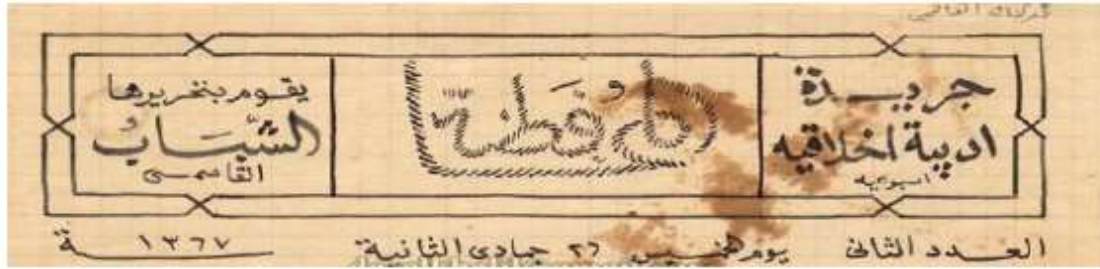 جريدة
ادبية اخلاقيه
اسبوعيه
يقوم بتحريرها
الشَّبَابُ
القاسمى
العدد الثانى يوم خميس ٢٦ جمادى الثانية ١٣٦٧ ــة